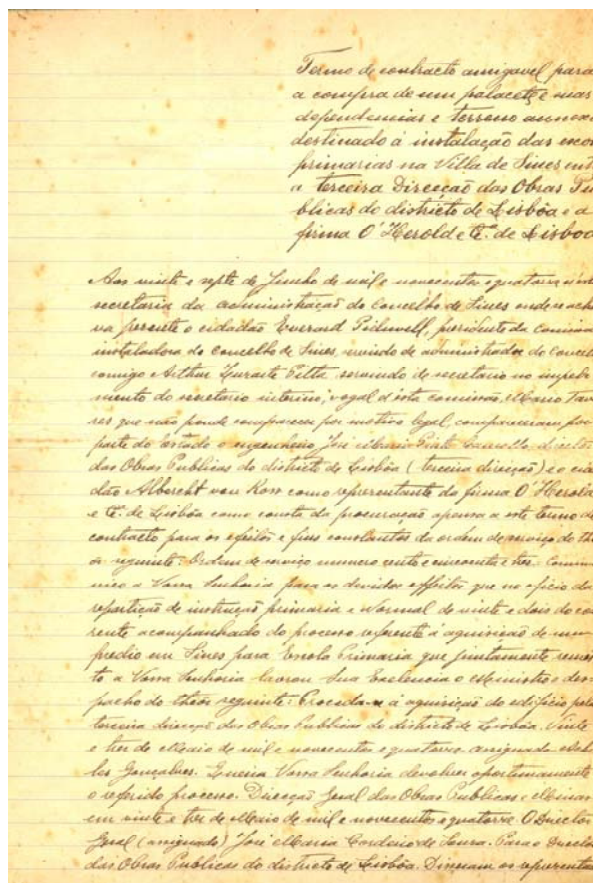 Termo de contracto amigavel para
a compra de um palacete e suas
dependencias e terreno annexo
destinado á instalação das escol
primarias na Villa de Sines ent
a terceira Direcção das Obras Pu
blicas do districto de Lisbôa e a
firma O'Herold e C.ª de Lisboa
Aos vinte e sete de Junho de mil e novecentos e quatorze n'esta
secretaria da administração do Concelho de Sines onde se acha
va presente o cidadão Everard Pidwell, presidente da Comissão
installadora do concelho de Sines, servindo de administrador do Concel
comigo Arthur Duarte Pitta servindo de secretario no impedi
mento do secretario interino, vogal d'esta comissão, Mario Tava
res que não poude comparecer por motivo legal, compareceram por
parte do Estado o engenheiro José Maria director
das Obras Publicas do districto de Lisbôa (terceira direcção) e o cida
dão Albrecht von Koss como representante da firma O'Herold
e C.ª de Lisbôa como consta da procuração apensa a este termo de
contracto para os efeitos e fins constantes da ordem de serviço do th
ôr seguinte: Ordem de serviço numero cento e cincoenta e tres. Commu
nico a Vossa Senhoria para os devidos effeitos que no oficio da
repartição de instrução primaria e normal de vinte e dois do cor
rente acompanhado do processo referente á aquisição de um
predio em Sines para Escola Primaria que juntamente remet
to a Vossa Senhoria lavrou Sua Excelencia o Ministro o des
pacho do theor seguinte: Proceda-se á aquisição do edificio pela
terceira direcção das Obras Publicas do districto de Lisboa. Vinte
e tres de Maio de mil e novecentos e quatorze. assignado Achil
les Gonçalves. Queira Vossa Senhoria devolver oportunamente
o referido processo. Direcção Geral das Obras Publicas e Minas
em vinte e tres de Maio de mil e novecentos e quatorze. O Director
Geral (assignado) José Maria Cordeiro de Sousa. Para o Director
das Obras Publicas do districto de Lisbôa. Disseram os representan